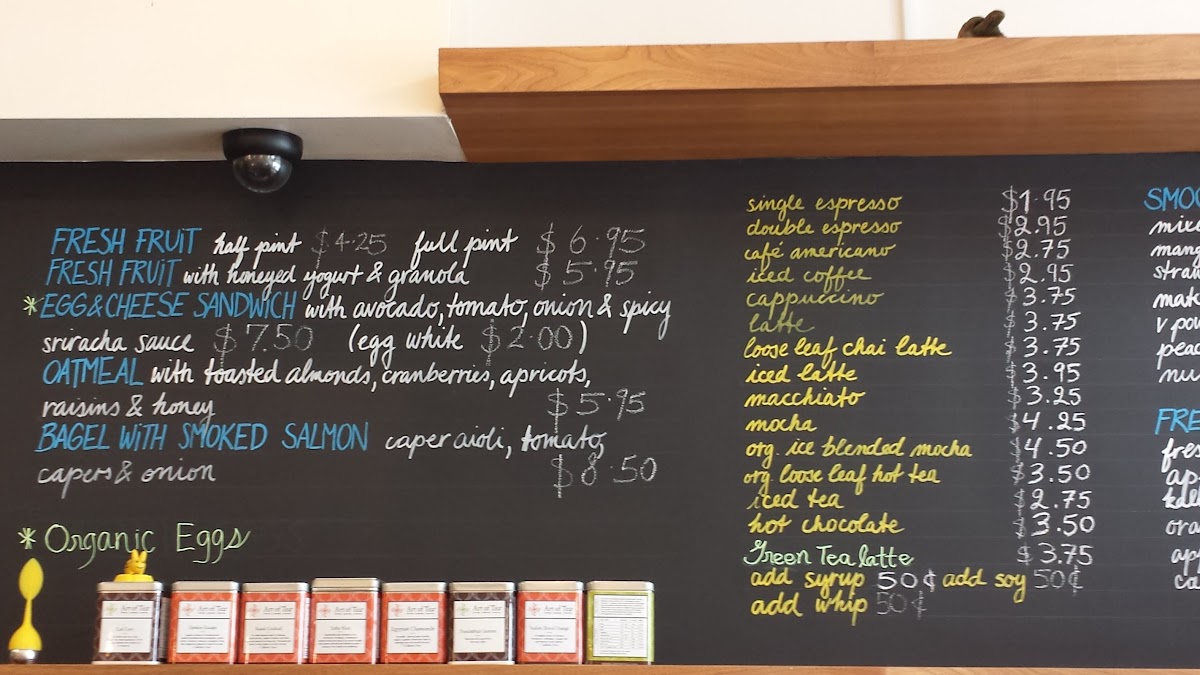 FRESH FRUIT half pint $4.25 full pint $6.95
FRESH FRUIT with honeyed yogurt & granola $5.95
*EGG&CHEESE SANDWICH with avocado, tomato, onion & spicy
sriracha sauce $7.50 (egg white $2.00)
OATMEAL with toasted almonds, cranberries, apricots,
raisins & honey $5.95
BAGEL WITH SMOKED SALMON caper aioli, tomato,
capers & onion $8.50
* Organic Eggs
single espresso $1.95
double espresso $2.95
café americano $2.75
iced coffee $2.95
cappuccino $3.75
latte $3.75
loose leaf chai latte $3.75
iced latte $3.95
macchiato $3.25
mocha $4.25
org. ice blended mocha $4.50
org. loose leaf hot tea $3.50
iced tea $2.75
hot chocolate $3.50
Green Tea latte $3.75
add syrup 50¢ add soy 50¢
add whip 50¢
SMOO
mixe
mang
straw
mat
v pow
peac
nu
FRE
fres
ap
kal
ora
app
ca
Art of Tea
Art of Tea
Art of Tea
Art of Tea
Art of Tea
Egyptian Chamomile
Art of Tea
Art of Tea